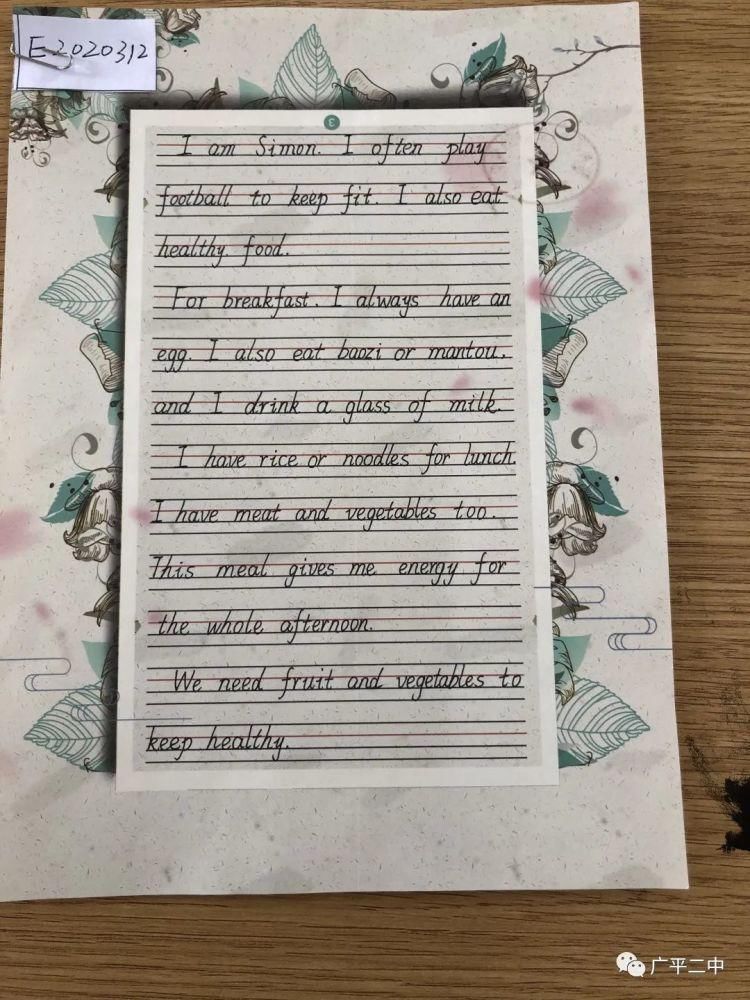 E2020312
3
I am Simon. I often play
football to keep fit. I also eat
healthy food.
For breakfast. I always have an
egg. I also eat baozi or mantou.
and I drink a glass of milk.
I have rice or noodles for lunch.
I have meat and vegetables too.
This meal gives me energy for
the whole afternoon.
We need fruit and vegetables to
keep healthy.
广平二中